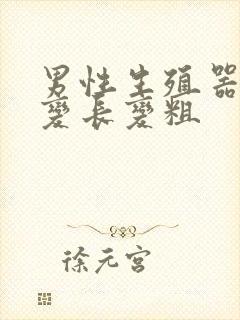 男性生殖器
变长变粗
徐元宫